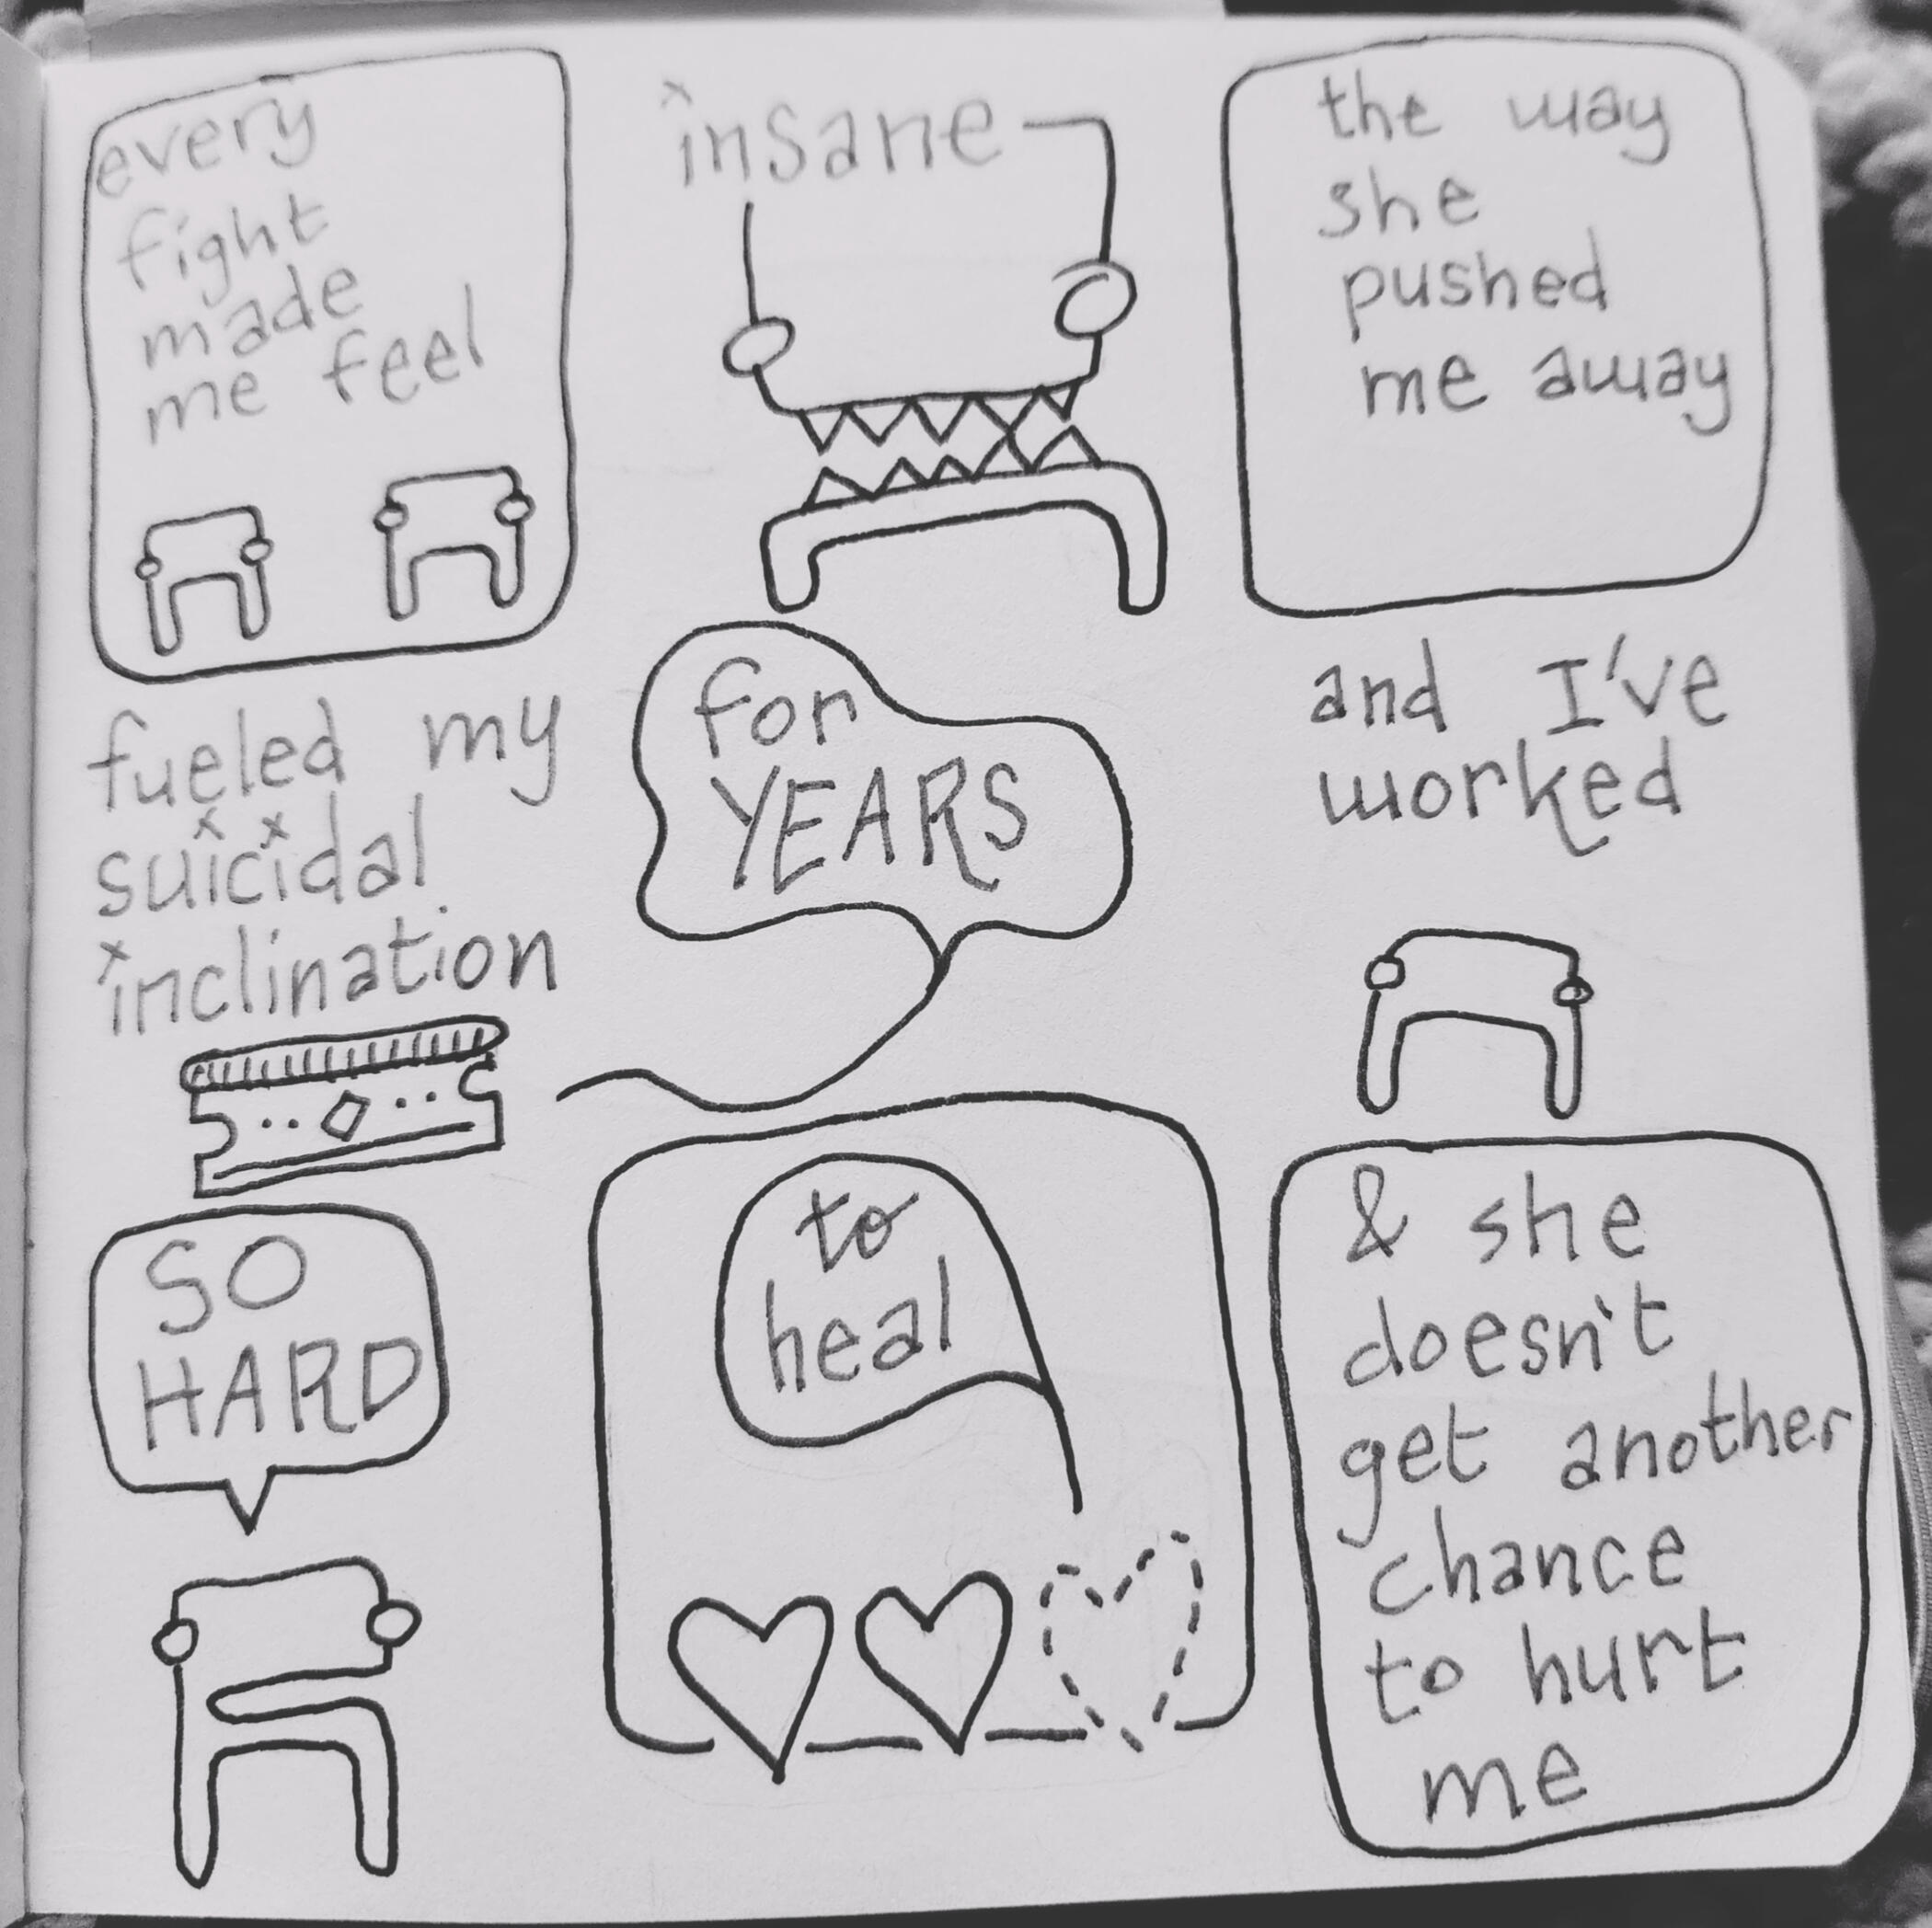 every
fight
made
me feel
insane
the way
she
pushed
me away
fueled my
suicidal
inclination
for
YEARS
and I've
worked
SO
HARD
to
heal
& she
doesn't
get another
chance
to hurt
me